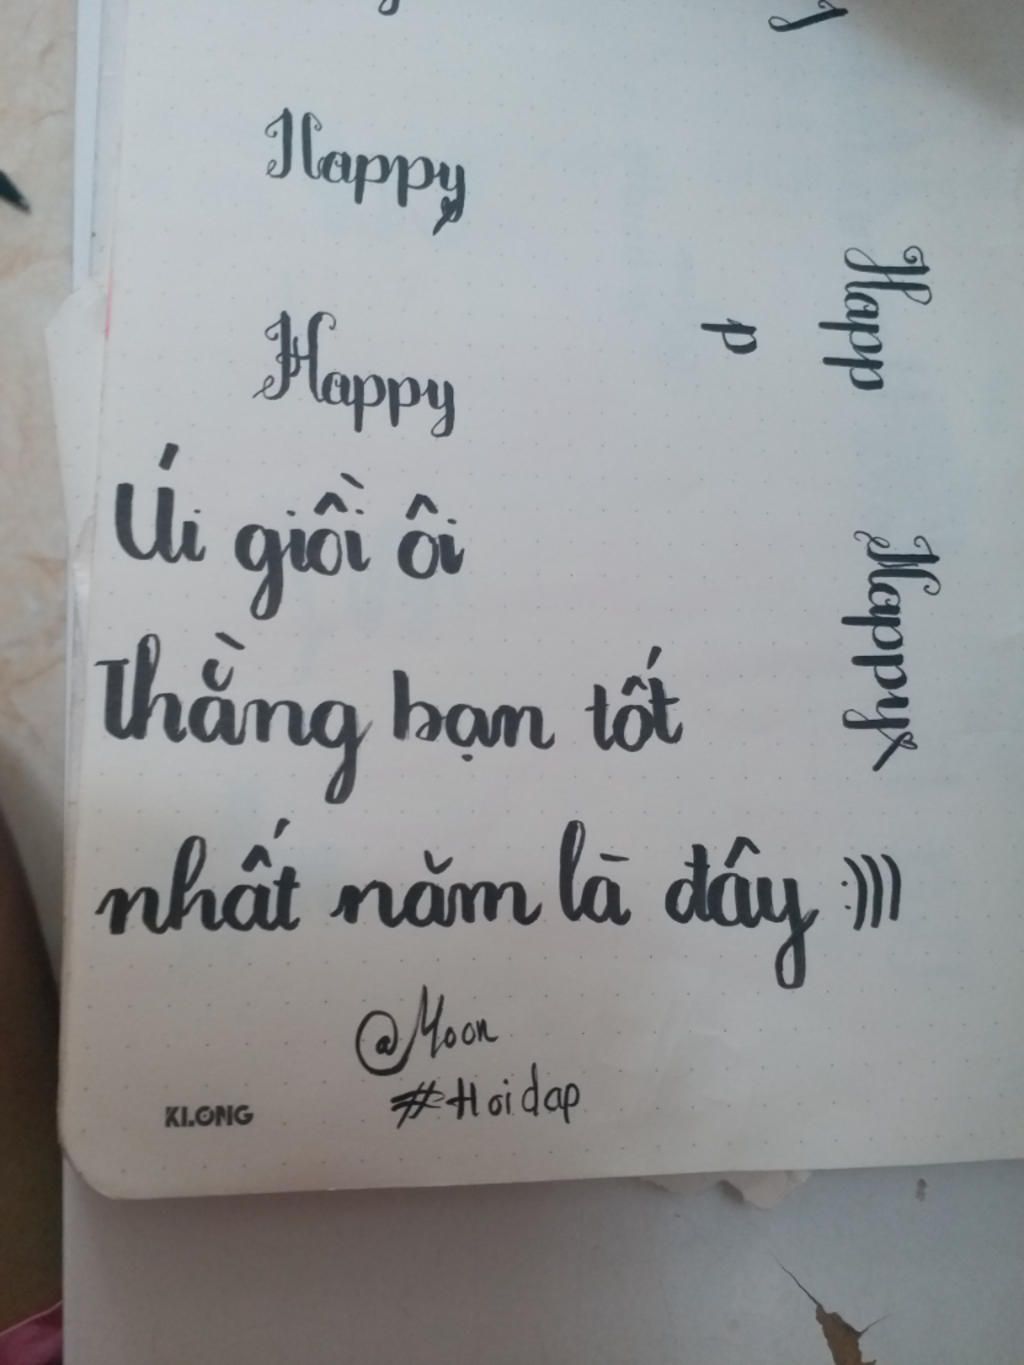 Happy
Happy
p
Happ
Happy
Úi giồi ôi
Thằng bạn tốt
nhất năm là đây :)))
@Moon
#Hoidap
KLONG